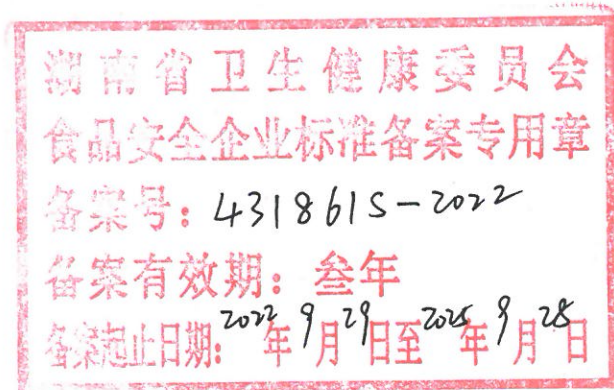 湖南省卫生健康委员会
食品安全企业标准备案专用章
备案号：4318615-2022
备案有效期：叁年
备案起止日期：2022年9月29日至2025年9月28日